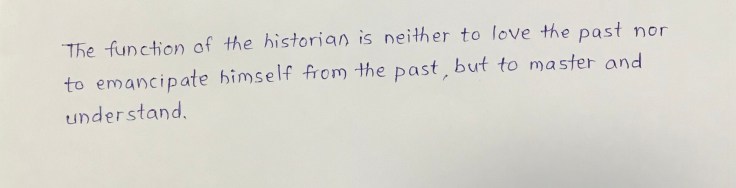 The function of the historian is neither to love the past nor
to emancipate himself from the past, but to master and
understand.